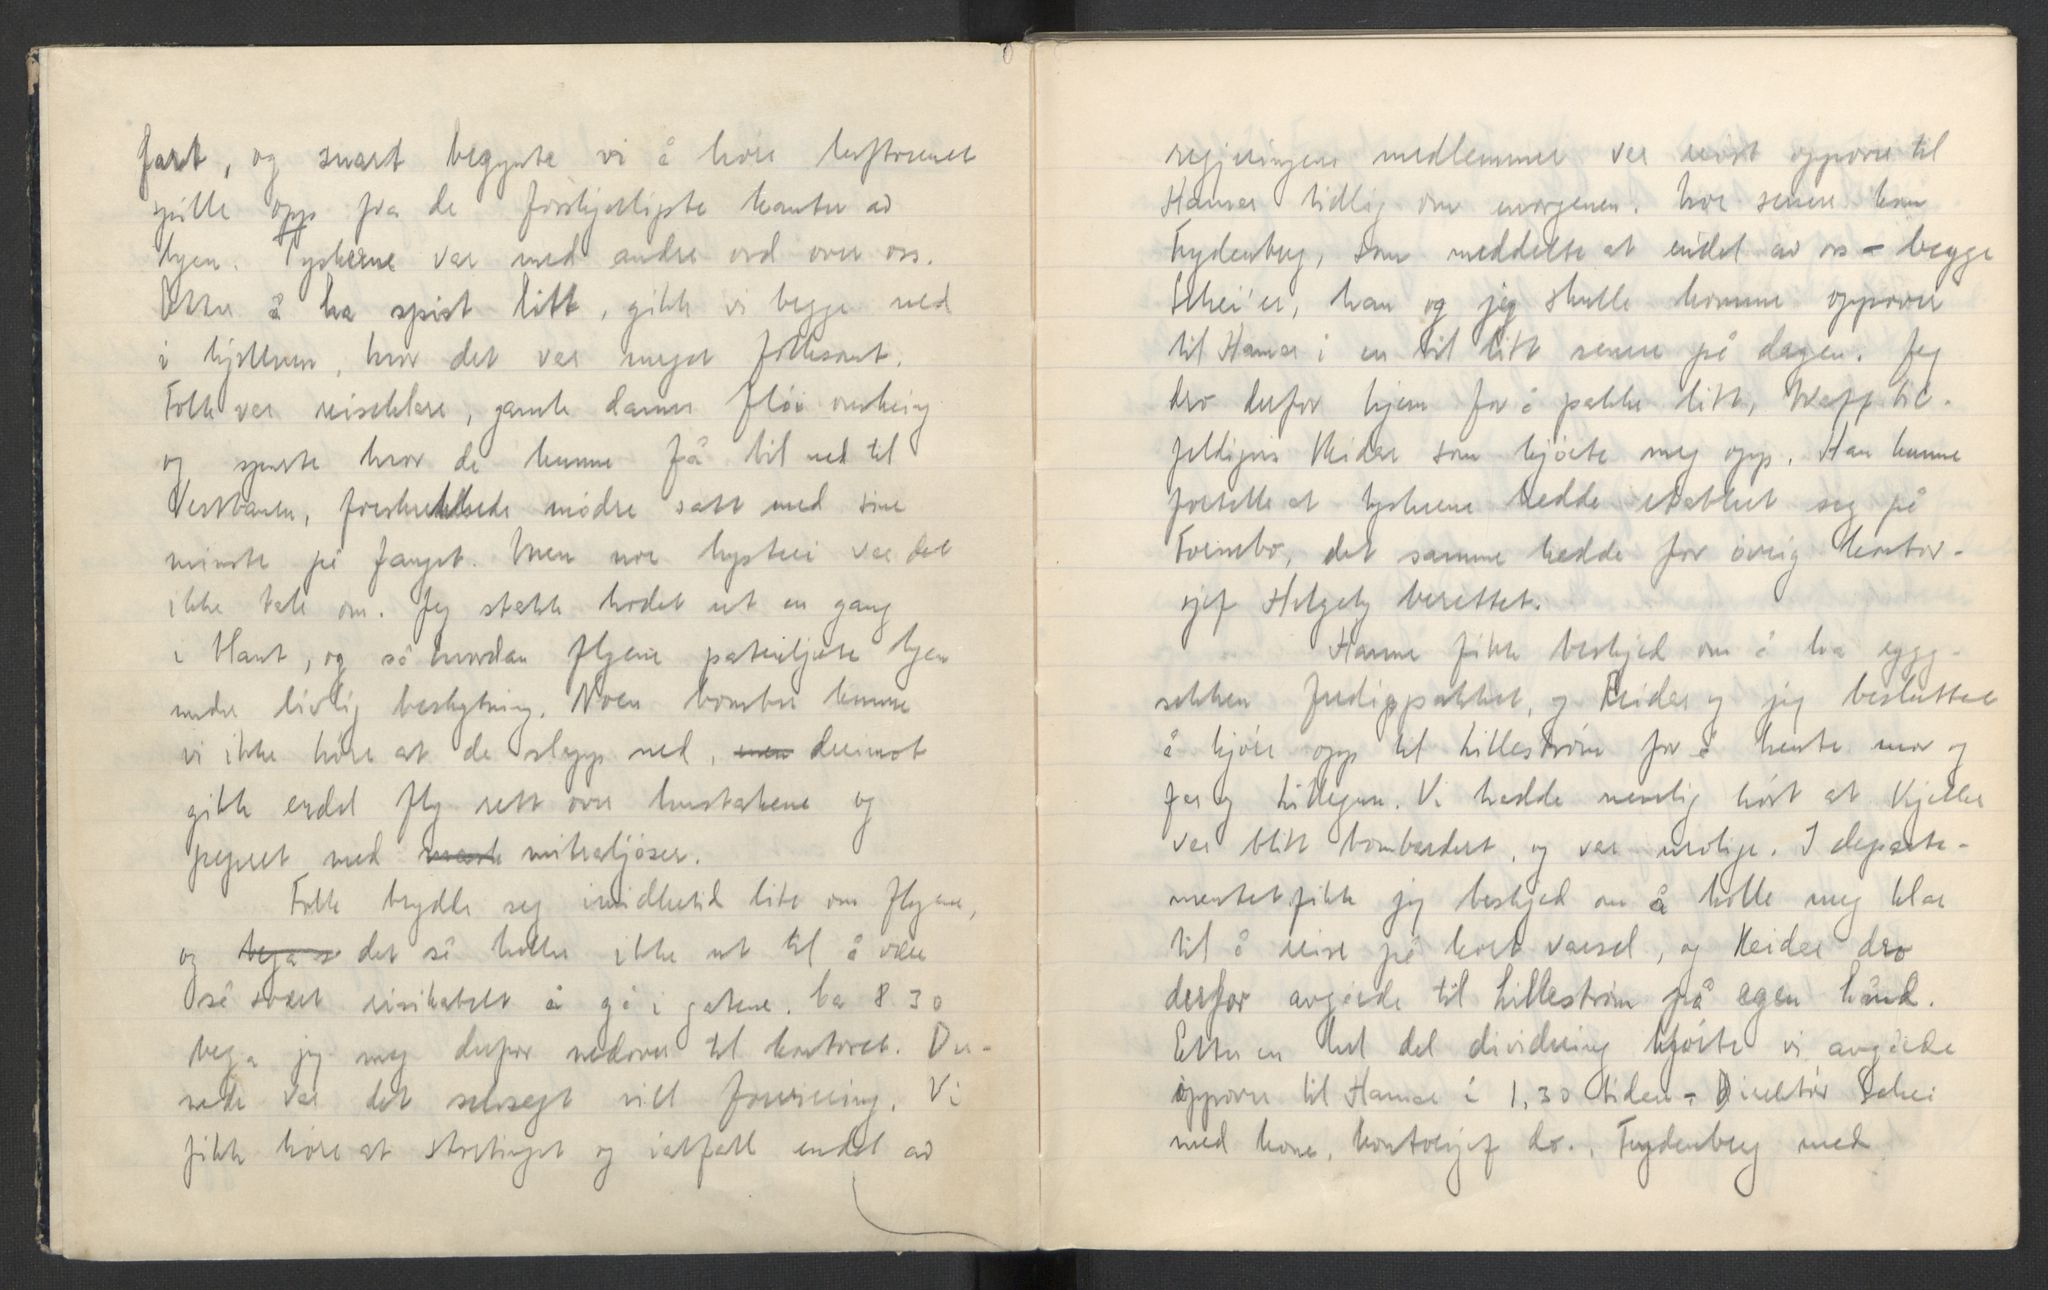 fart, og snart begynte vi å höre luftvernet
spille opp fra de forskjelligste kanter av
byen. Tyskerne var med andre ord over oss.
Etter å ha spist litt, gikk vi begge ned
i kjelleren, hvor det var meget folksomt.
Folk var reiseklare, gamle damer fløi omkring
og spurte hvor de kunne få bil ned til
Vestbanen, forskrekkede mødre satt med sine
minste på fanget. Men noe hysteri var det
ikke tale om. Jeg stakk hodet ut en gang
i blant, og så hvordan flyene patruljerte byen
under livlig beskytning. Noen bomber kunne
vi ikke höre at de slapp ned, men derimot
gikk endel fly rett over hustakene og
pepret med mitraljøser.
Folk brydde seg imidlertid lite om flyene,
og bega det så heller ikke ut til å være
så svært risikabelt å gå i gatene. Ca 8 30
bega jeg meg derfor nedover til kontoret. Der-
nede var det selvsagt vill forvirring. Vi
fikk høre at Stortinget og iallfall endel av
regjeringens medlemmer var reist oppover til
Hamar tidlig om morgenen. Noe senere kom
Frydenberg, som meddelte at endel av oss - begge
Schei'er, han og jeg skulle komme oppover
til Hamar i en bil litt senere på dagen. Jeg
dro derfor hjem for å pakke litt, traff til-
feldigvis Reidar som kjørte meg opp. Han kunne
fortelle at tyskerne hadde etablert seg på
Fornebo, det samme hadde for øvrig kontor-
sjef Helgeby berettet.
Hanne fikk beskjed om å ha rygg-
sekken ferdigpakket, og Reidar og jeg besluttet
å kjøre opp til Lillestrøm for å hente mor og
far og Lillegun. Vi hadde nemlig hørt at Kjeller
var blitt bombardert, og var urolige. I departe-
mentet fikk jeg beskjed om å holde meg klar
til å reise på kort varsel, og Reidar dro
derfor avgårde til Lillestrøm på egen hånd.
Etter en hel del dividering kjørte vi avgårde
oppover til Hamar i 1,30 tiden - Direktør Schei
med kone, kontorsjef do., Frydenberg med